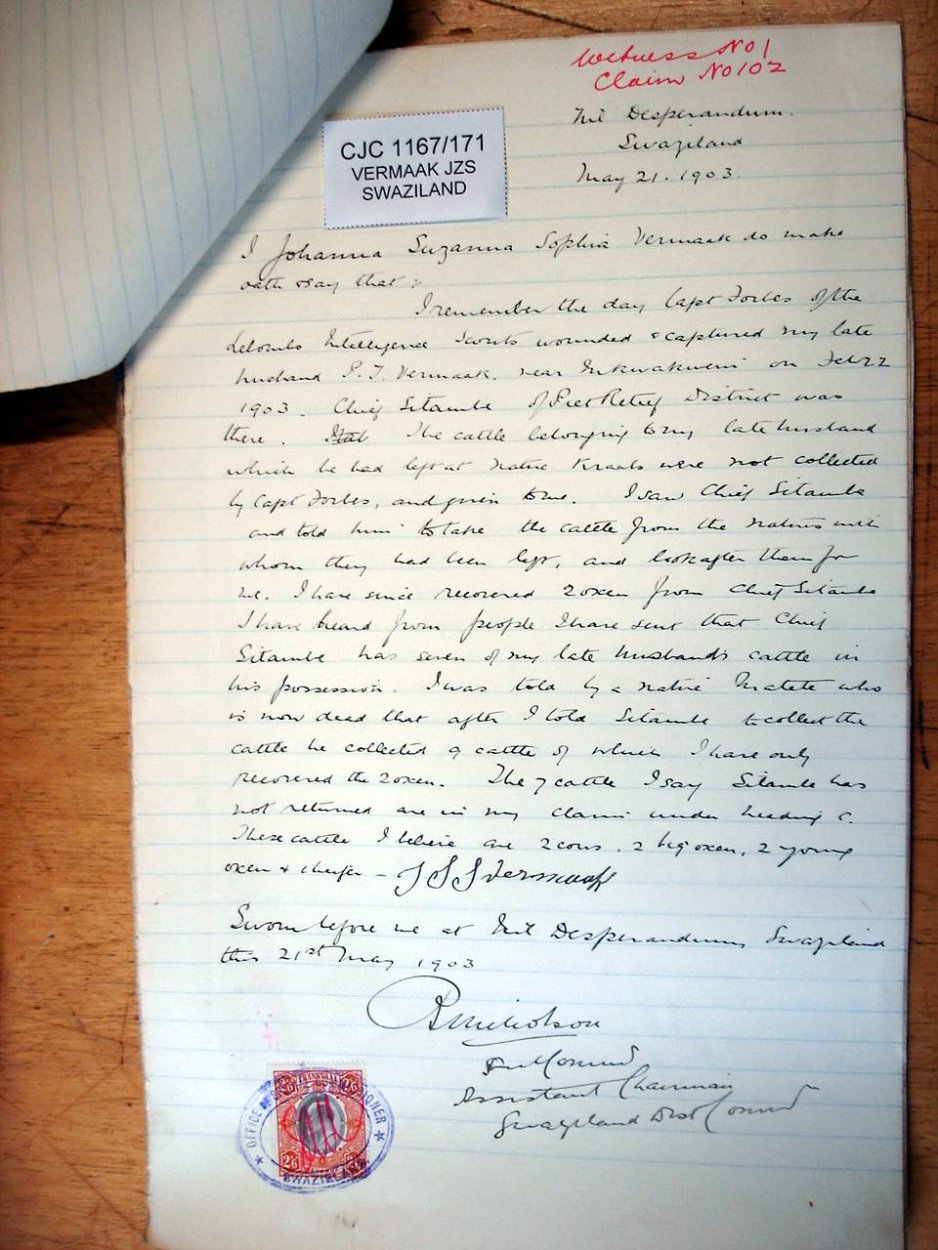 Witness No 1
Claim No 102
CJC 1167/171
VERMAAK JZS
SWAZILAND
Nil Desperandum.
Swaziland
May 21. 1903.
I Johanna Suzanna Sophia Vermaak do make
oath & say that :
I remember the day Capt Forbes of the
Lebombo Intelligence Scouts wounded & captured my late
husband P. J. Vermaak. near on Feb 22
1903. Chief Sitambe of Piet Retief District was
there. The cattle belonging to my late husband
which he had left at native Kraals were not collected
by Capt Forbes, and given to me. I saw Chief Sitambe
and told him to take the cattle from the natives with
whom they had been left, and look after them for
me. I have since recovered 2 oxen from Chief Sitambe
I have heard from people I have sent that Chief
Sitambe has seven of my late husband's cattle in
his possession. I was told by a native Matete who
is now dead that after I told Sitambe to collect the
cattle he collected 9 cattle of which I have only
recovered the 2 oxen. The 7 cattle I say Sitambe has
not returned are in my claim under heading C.
These cattle I believe are 2 cows, 2 big oxen, 2 young
oxen & heifer - J S S Vermaak
Sworn before me at Nil Desperandum, Swaziland
this 21st May 1903
Nicholson
Assistant Chairman
Swaziland Dist Commn
OFFICE SIONER
TRANSVAAL
2/6
SWAZIELAND